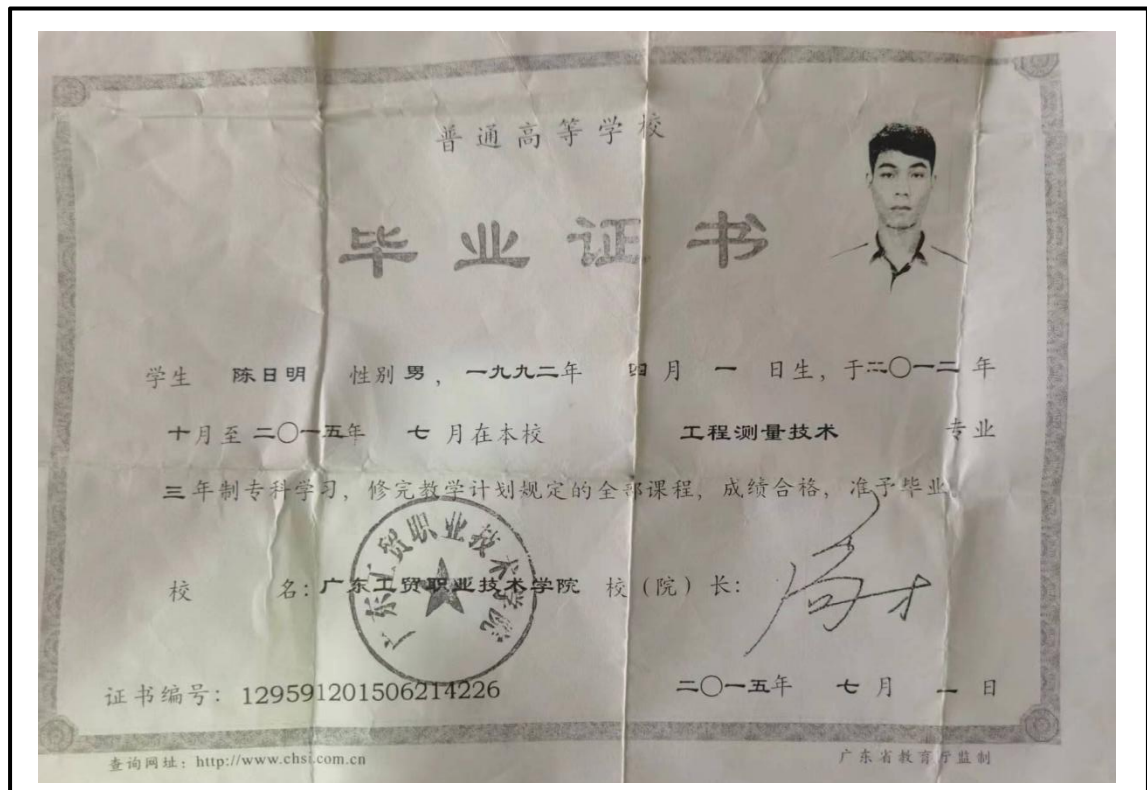 普通高等学校
毕业证书
学生 陈日明 性别 男，一九九二年 四 月 一 日生，于二〇一二年
十月至二〇一五年 七 月在本校 工程测量技术 专业
三年制专科学习，修完教学计划规定的全部课程，成绩合格，准予毕业
校 名：广东工贸职业技术学院 校（院）长：
广东工贸职业技术学院
证书编号：129591201506214226 二〇一五年 七 月 一 日
查询网址：http://www.chsi.com.cn 广东省教育厅监制